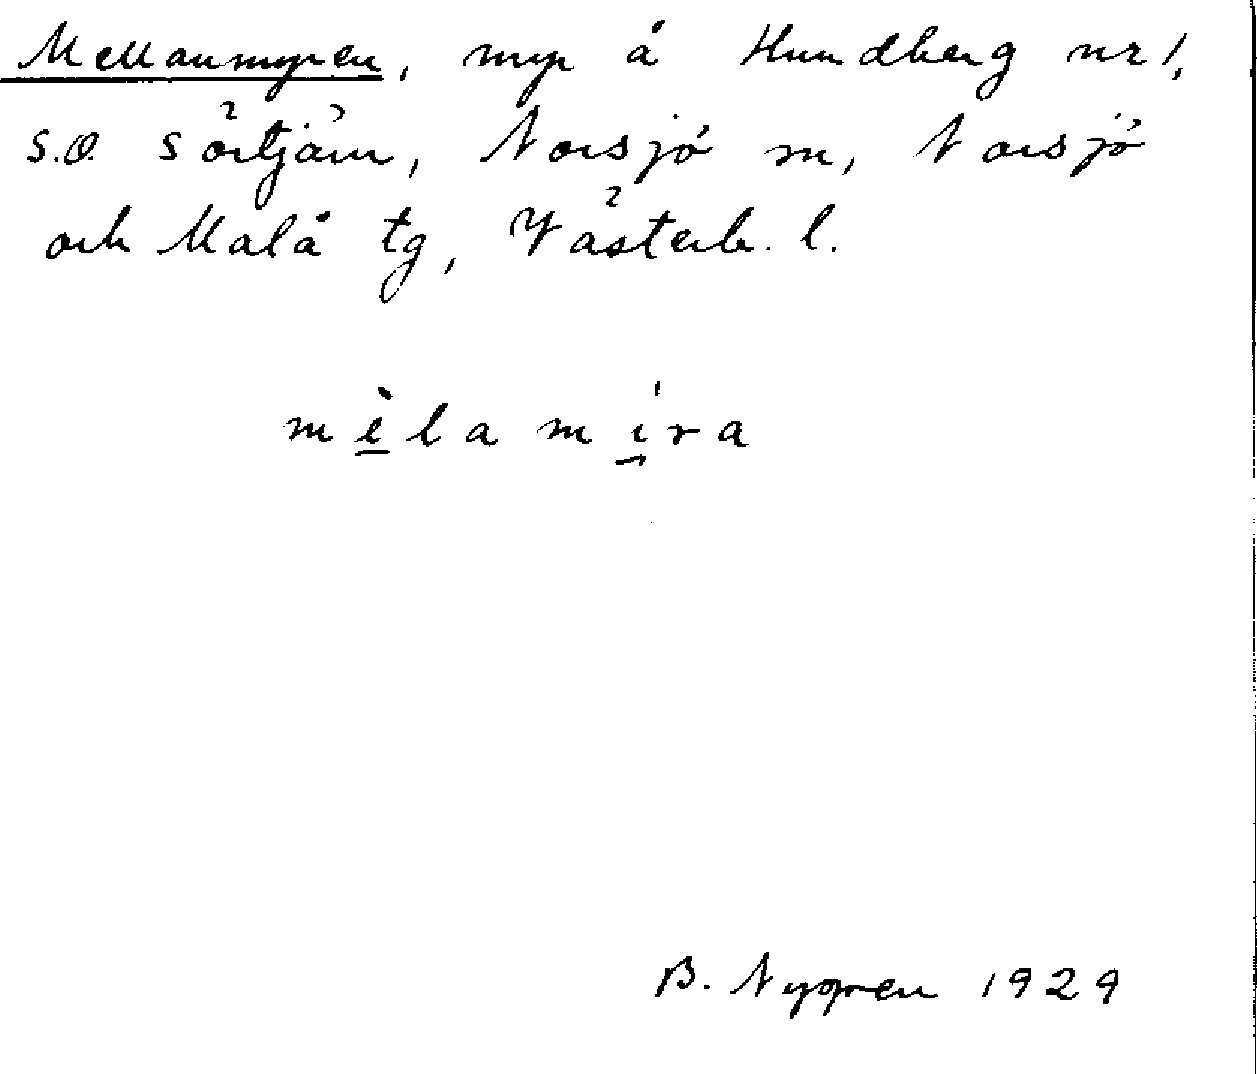 Mellanmyren, myr å Hundberg nr 1,
S.O. Sörtjärn, Norsjö sn, Norsjö
och Malå tg, Västerb. l.
mèlamíra
B. Nygren 1929